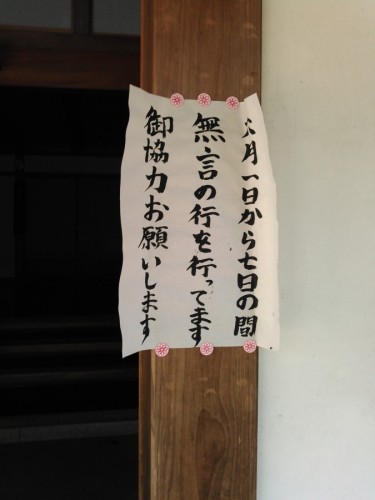 六月一日から七日の間
無言の行を行ってます
御協力お願いします